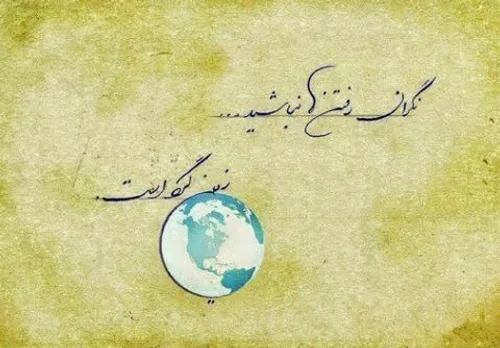 نگران رفتن ها نباشید...
زمین گرد است.